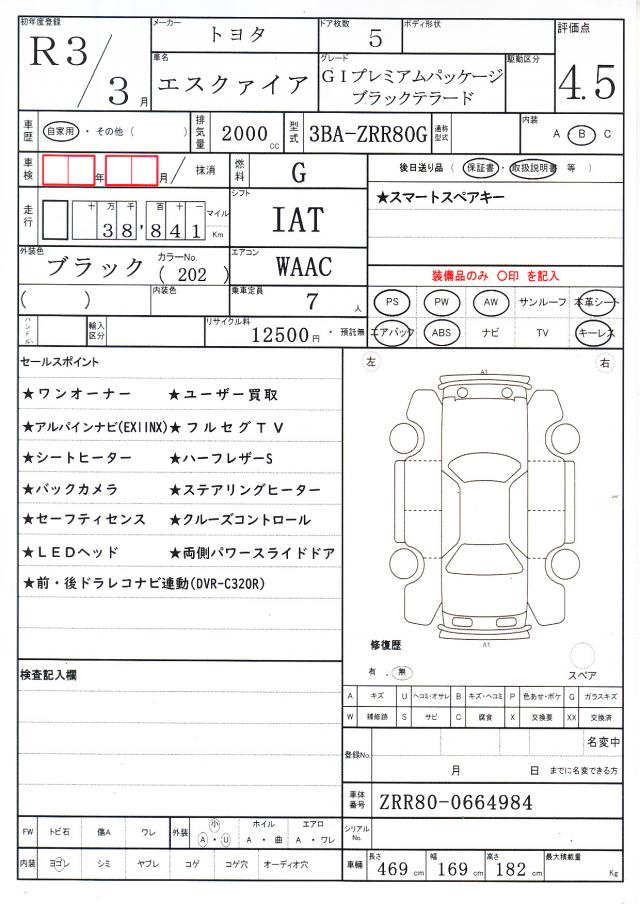 初年度登録 R3/3月
メーカー トヨタ
ドア枚数 5
ボディ形状
評価点 4.5
車名 エスクァイア
グレード GIプレミアムパッケージ
ブラックテラード
駆動区分
車歴 自家用・その他（ ）
排気量 2000 cc
型式 3BA-ZRR80G
通称型式
内装 A・B C
車検 年 月 / 抹消
燃料 G
後日送り品（ 保証書・取扱説明書 等 ）
走行 十 万 千 百 十 一 マイル
38,841 Km
シフト IAT
★スマートスペアキー
外装色 ブラック カラーNo. ( 202 )
エアコン WAAC
装備品のみ 〇印 を記入
( )
内装色
乗車定員 7 人
PS PW AW サンルーフ 本革シート
ハンドル
輸入区分
リサイクル料 12500円・預託無
エアバック ABS ナビ TV キーレス
セールスポイント
左 右
★ワンオーナー ★ユーザー買取
A1
★アルパインナビ(EX11NX)★フルセグTV
★シートヒーター ★ハーフレザーS
★バックカメラ ★ステアリングヒーター
★セーフティセンス ★クルーズコントロール
★LEDヘッド ★両側パワースライドドア
★前・後ドラレコナビ連動(DVR-C320R)
A1
修復歴
有 . 無
スペア
検査記入欄
A キズ U ヘコミ・オサレ B キズ・ヘコミ P 色あせ・ボケ G ガラスキズ
W 補修跡 S サビ C 腐食 X 交換要 XX 交換済
登録No. 名変中
月 日 までに名変できる方
車体番号 ZRR80-0664984
シリアルNo.
FW トビ石 傷A ワレ 外装 小 A・U ホイル A・曲 エアロ A・ワレ
内装 ヨゴレ シミ ヤブレ コゲ コゲ穴 オーディオ穴
車輛 長さ 469 cm 幅 169 cm 高さ 182 cm 最大積載量 Kg